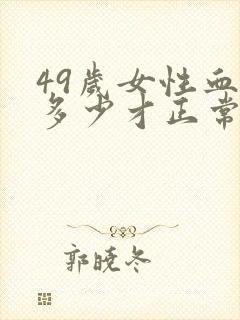 49歲女性血
多少才正常
郭曉冬